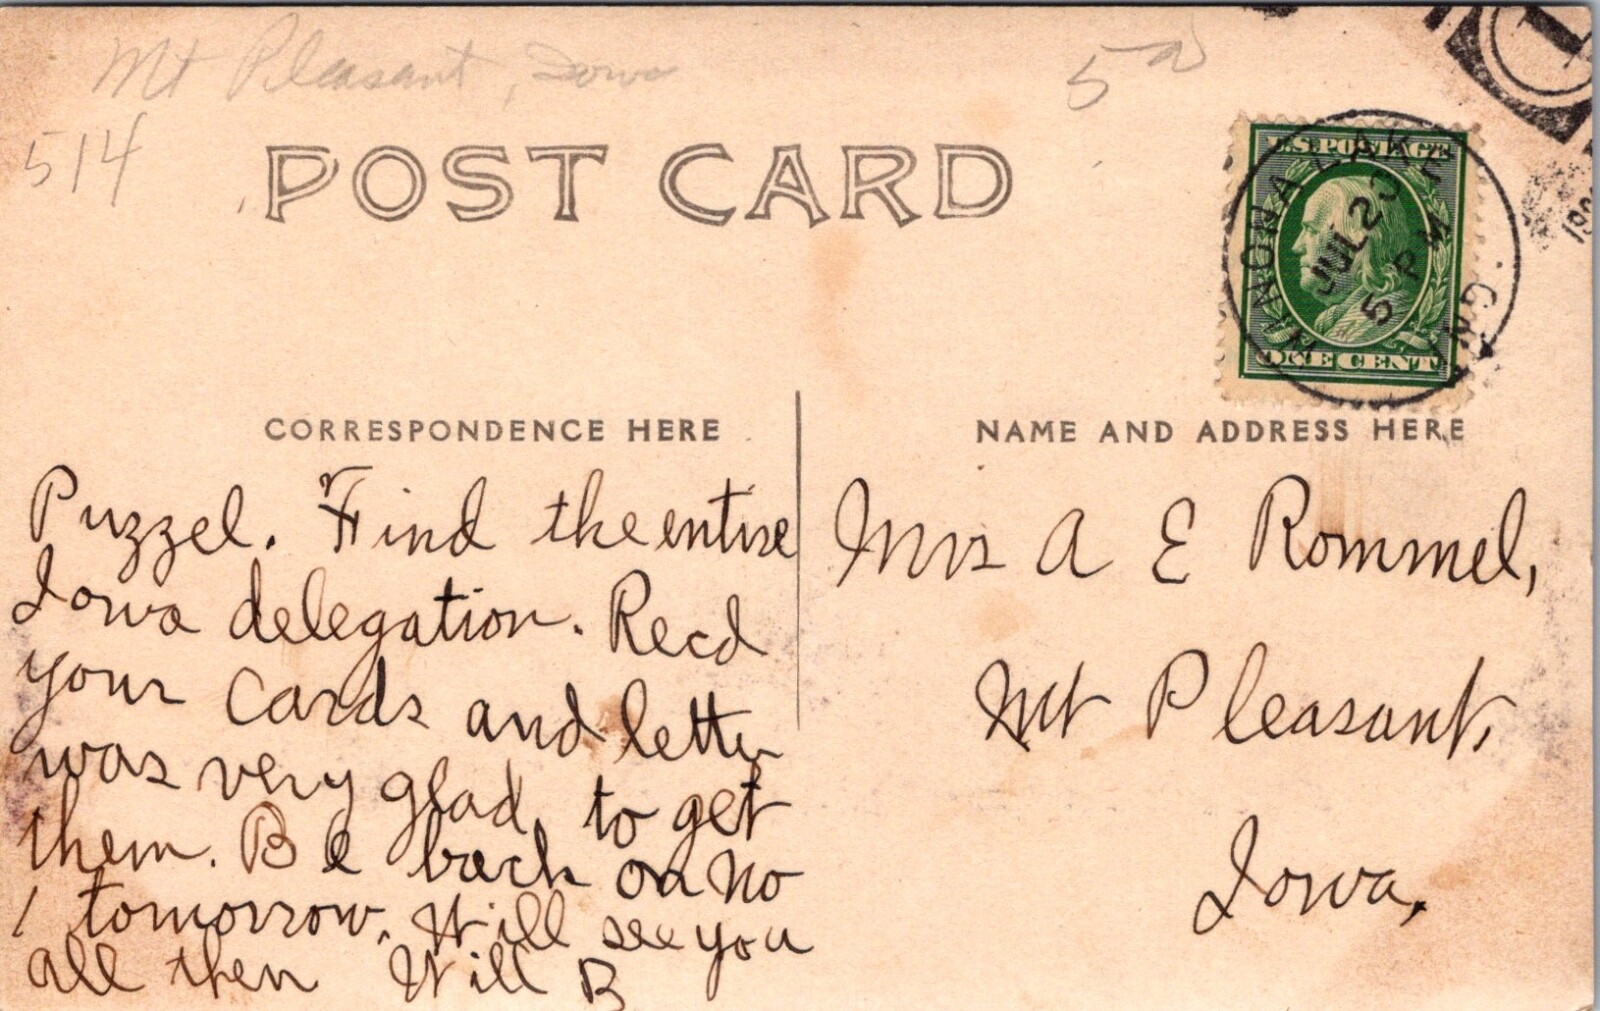 Mt Pleasant, Iowa
514
POST CARD
U.S. POSTAGE
ONE CENT
WINONA LAKE
JUL 23
5 PM
CORRESPONDENCE HERE
NAME AND ADDRESS HERE
Puzzel. Find the entire
Iowa delegation. Recd
your cards and letter
was very glad to get
them. Be back on No
1 tomorrow. Will see you
all then Will B
Mrs A E Rommel,
Mt Pleasant,
Iowa,